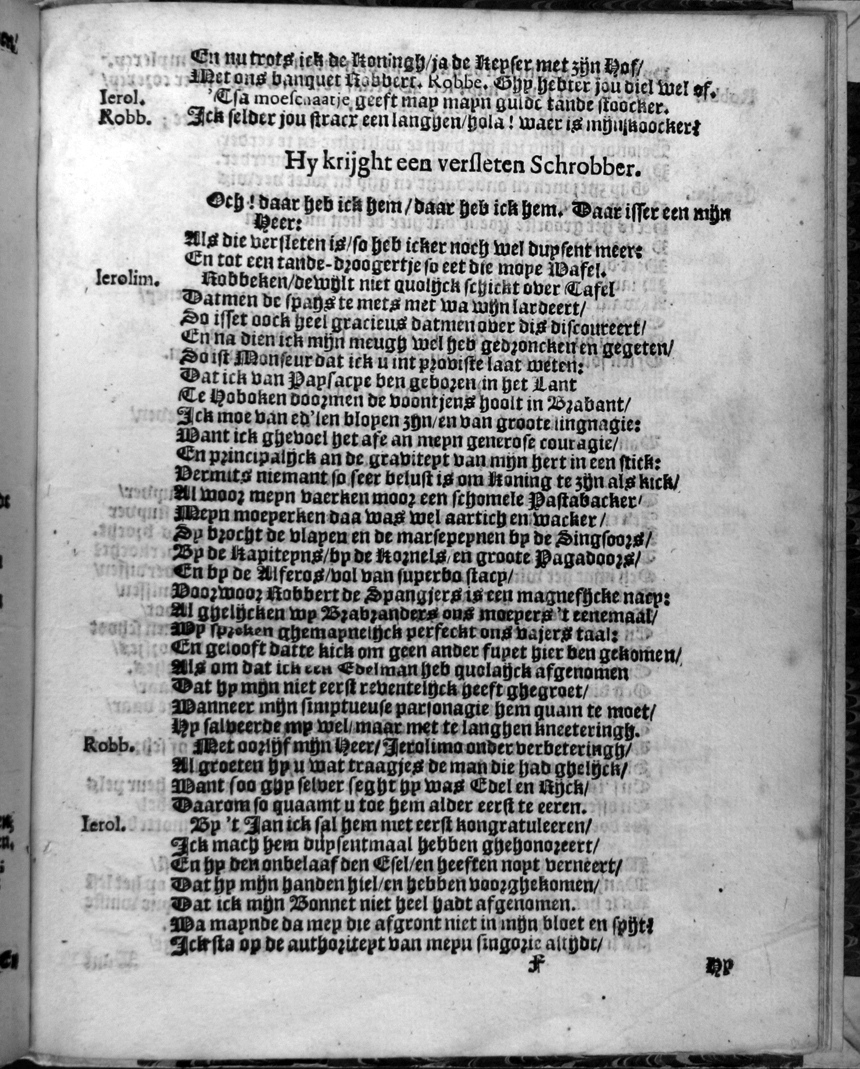 En nu trots ick de Koningh/ja de Keyser met zijn Hof/
Met ons banquet Robbert. Robbe. Ghy hebter jou diel wel of.
Ierol. 'Tsa moeschaatje geeft may mayn gulde tande stoocker.
Robb. Ick selder jou stracx een langhen/hola! waer is mijn koocker?
Hy krijght een versleten Schrobber.
Och! daar heb ick hem/daar heb ick hem. Daar isser een mijn
Heer:
Als die versleten is/so heb icker noch wel duysent meer:
En tot een tande-droogertje so eet die moye Wafel.
Ierolim. Robbeken/dewylt niet quolijck schickt over Tafel
Datmen de spays te mets met wa wijn lardeert/
So isset oock heel gracieus datmen over dis discoureert/
En na dien ick mijn meugh wel heb gedroncken en gegeten/
So ist Monseur dat ick u int proviste laat weten:
Dat ick van Paysacye ben geboren in het Lant
Te Hoboken doormen de voontjens hoolt in Brabant/
Ick moe van ed'len blopen zijn/en van groote lingnagie:
Want ick ghevoel het ase an meyn generose couragie/
En principalijck an de graviteyt van mijn hert in een stick:
Vermits niemant so seer belust is om Koning te zijn als kick/
Al woor meyn vaerken moor een schomele Pastabacker/
Meyn moeperken daa was wel aartich en wacker/
Sy brocht de vlayen en de marsepeynen by de Singsoors/
By de Kapiteyns/by de Kornels/en groote Pagadoors/
En by de Alferos/vol van superbo stacy/
Voorwoor Robbert de Spangjers is een magnefijcke nacy:
Al ghelijcken wy Brabranders ons moeyers 't eenemaal/
Wy sproken ghemaynelijck perfeckt ons vajers taal:
En gelooft datte kick om geen ander fuyet hier ben gekomen/
Als om dat ick een Edelman heb quolajck afgenomen
Dat hy mijn niet eerst reventelijck heeft ghegroet/
Wanneer mijn simptueuse parsonagie hem quam te moet/
Hy salveerde my wel/maar met te langhen kneeteringh.
Robb. Met oorlijf mijn Heer/Jerolimo onder verbeteringh/
Al groeten hy u wat traagjes de man die had ghelijck/
Want soo ghy selver seght hy was Edel en Rijck/
Daarom so quaamt u toe hem alder eerst te eeren.
Ierol. By 't Jan ick sal hem met eerst kongratuleeren/
Ick mach hem duysentmaal hebben ghehonoreert/
En hy den onbelaaf den Esel/en heeften noyt verneert/
Dat hy mijn handen hiel/en hebben voorghekomen/
Dat ick mijn Bonnet niet heel hadt afgenomen.
Wa maynde da mey die afgront niet in mijn bloet en spijt?
Ick sta op de authoriteyt van meyn singorie altijdt/
F Hy